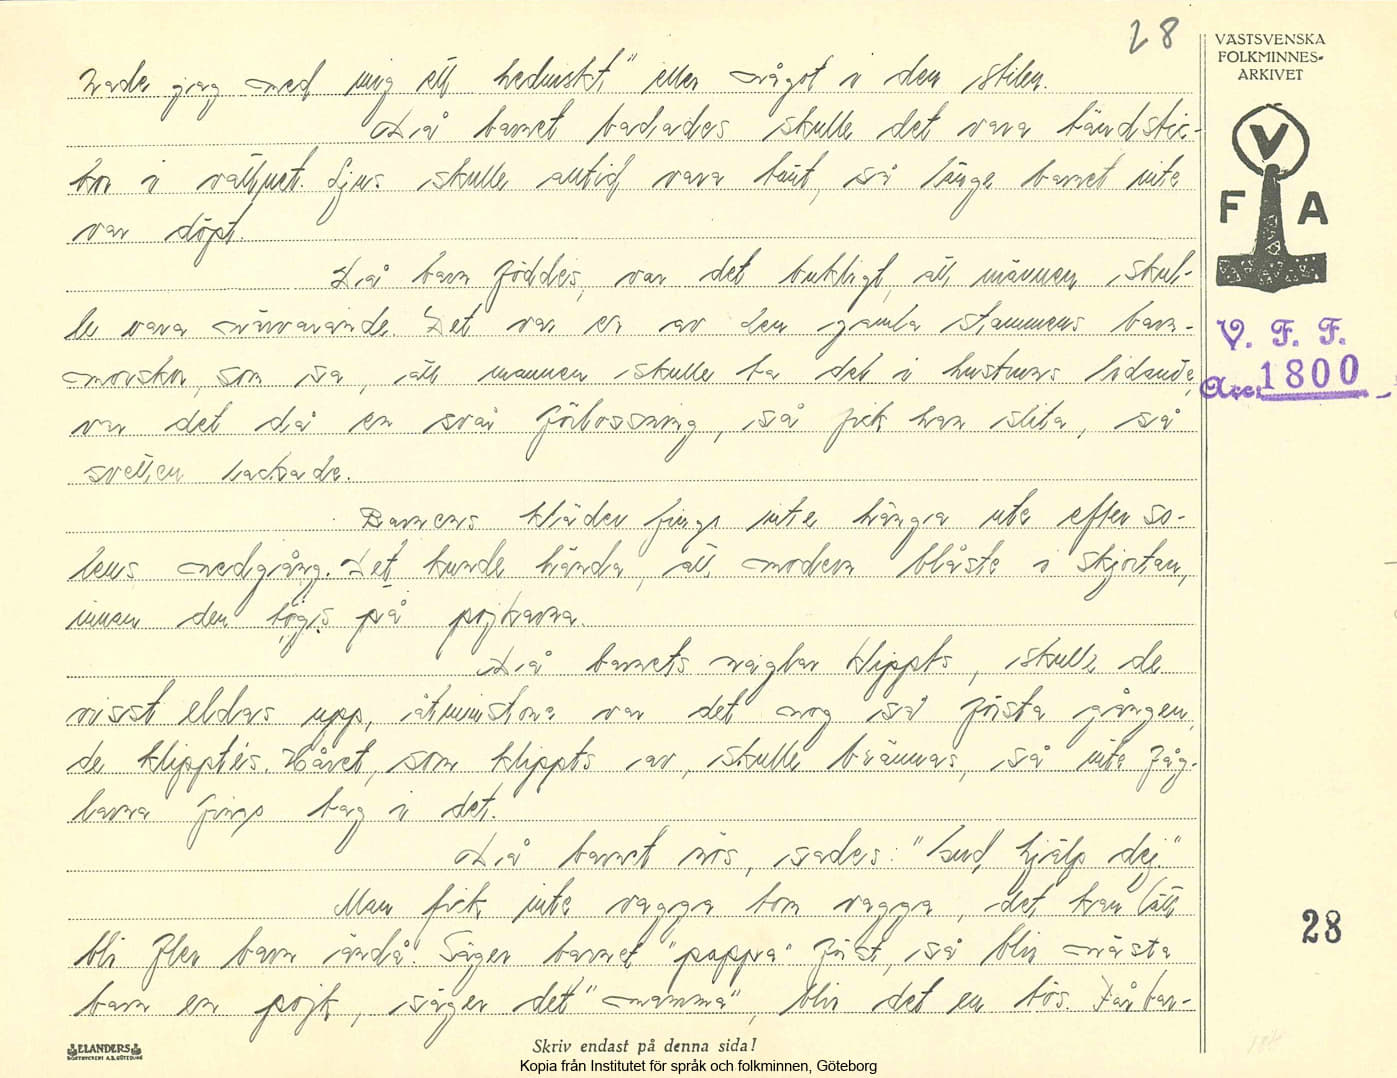 28
VÄSTSVENSKA
FOLKMINNES-
ARKIVET
V
F A
V. F. F.
Acc. 1800
hade jag med mig ett hedniskt" eller något i den stilen.
Då barnet badades skulle det vara tändstic-
kor i vattnet. Ljus skulle alltid vara tänt, så länge barnet inte
var döpt.
Då barn föddes, var det brukligt, att männen skul-
le vara närvarande. Det var en av den gamla stammens barn-
morskor, som sa, att mannen skulle ta del i hustruns lidande,
var det då en svår förlossning, så fick han slita, så
svetten lackade.
Barnens kläder fingo inte hänga ute efter so-
lens nedgång. Det kunde hända, att modern blåste i skjortan,
innan den togs på pojkarna.
Då barnets naglar klippts, skulle de
visst eldas upp, åtminstone var det nog så första gången,
de klipptes. Håret, som klippts av, skulle brännas, så inte fåg-
larna fingo tag i det.
Då barnet nös, sades: "Gud hjälp dej."
Man fick inte vagga tom vagga, det kan lätt
bli fler barn ändå. Säger barnet "pappa" först, så blir nästa
barn en pojk, säger det "mamma", blir det en tös. Får bar-
28
ELANDERS
BOKTRYCKERI A.B. GÖTEBORG
Skriv endast på denna sida!
Kopia från Institutet för språk och folkminnen, Göteborg